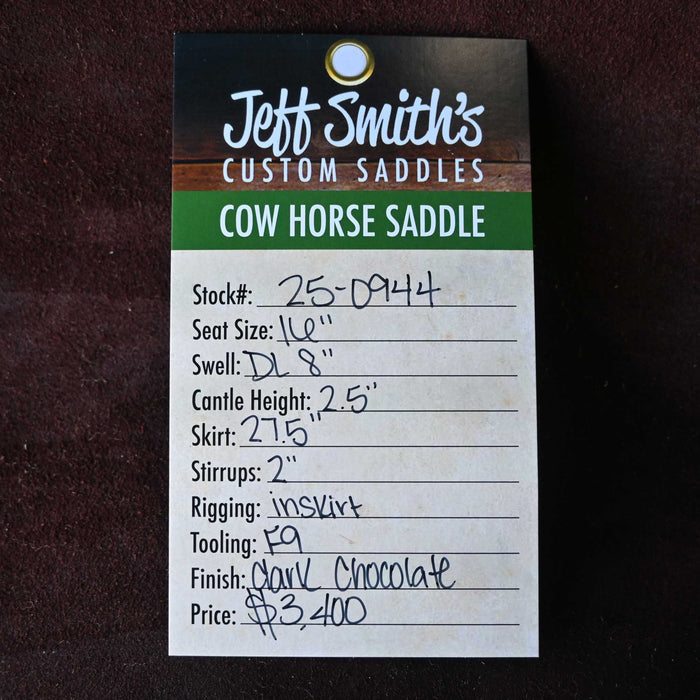 Jeff Smith's
CUSTOM SADDLES
COW HORSE SADDLE
Stock#: 25-0944
Seat Size: 16"
Swell: DL 8"
Cantle Height: 2.5"
Skirt: 27.5"
Stirrups: 2"
Rigging: inskirt
Tooling: F9
Finish: dark chocolate
Price: $3,400